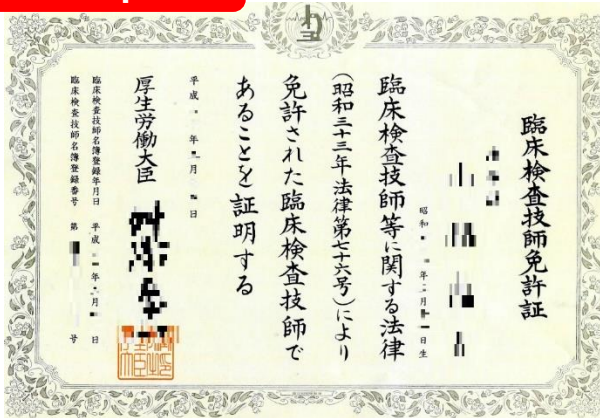 臨床検査技師免許証
昭和 年 月 日生
臨床検査技師等に関する法律
(昭和三十三年法律第七十六号)により
免許された臨床検査技師で
あることを証明する
平成 年 月 日
厚生労働大臣
臨床検査技師名簿登録年月日 平成 年 月 日
臨床検査技師名簿登録番号 第 号